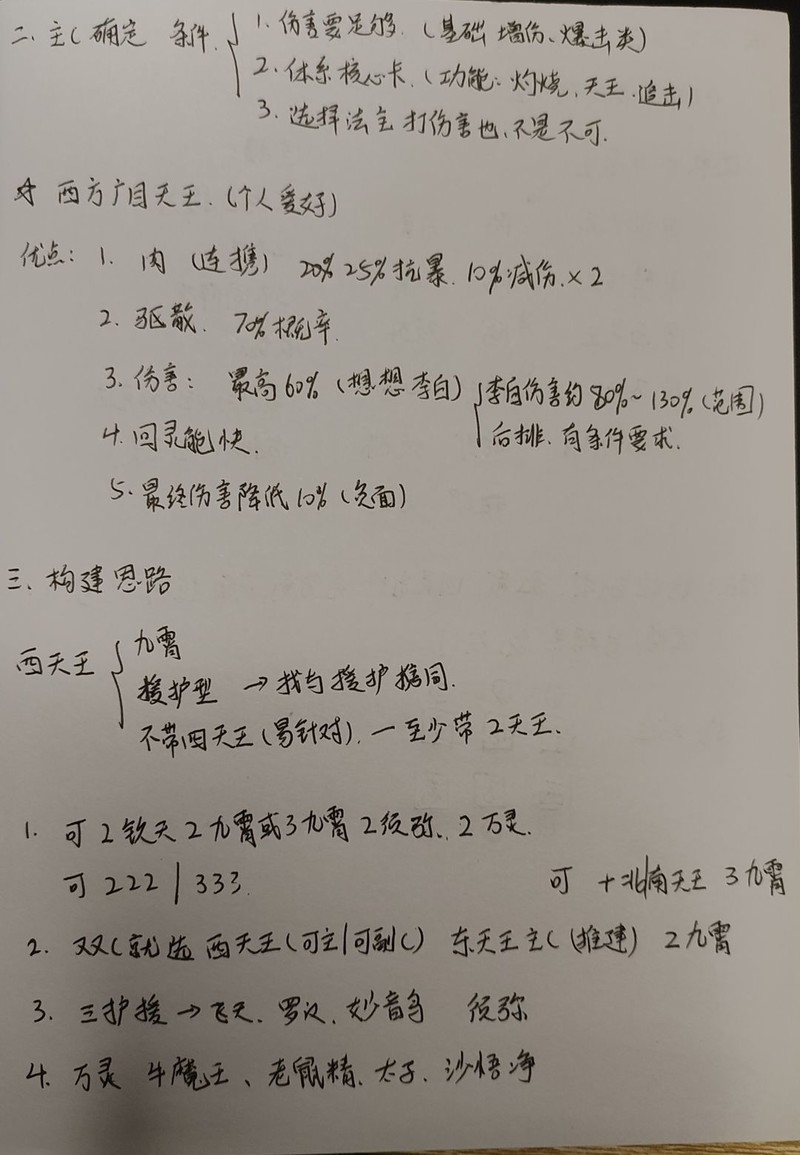 二、主C确定 条件
1. 伤害要足够.（基础 增伤、爆击类）
2. 体系核心卡.（功能: 灼烧、天王、追击）
3. 选择法主 打伤害也, 不是不可.
☆ 西方广目天王.（个人爱好）
优点: 1. 肉（连携） 20% 25%抗暴. 10%减伤. ×2
2. 驱散. 70%概率.
3. 伤害: 最高60%（想想李白） 李白伤害约80%~130%（范围）
后排. 有条件要求.
4. 回灵能快.
5. 最终伤害降低10%（负面）
三、构建思路
西天王
九霄
援护型 → 找与援护携同.
不带四天王（易针对）. 一至少带2天王.
1. 可2钦天2九霄或3九霄2须弥、2万灵.
可222 | 333. 可 +北南天王 3九霄
2. 双C就选西天王（可主|可副C） 东天王主C（推建） 2九霄
3. 三护援→飞天、罗汉、妙音鸟 须弥
4. 万灵 牛魔王、老鼠精、太子、沙悟净